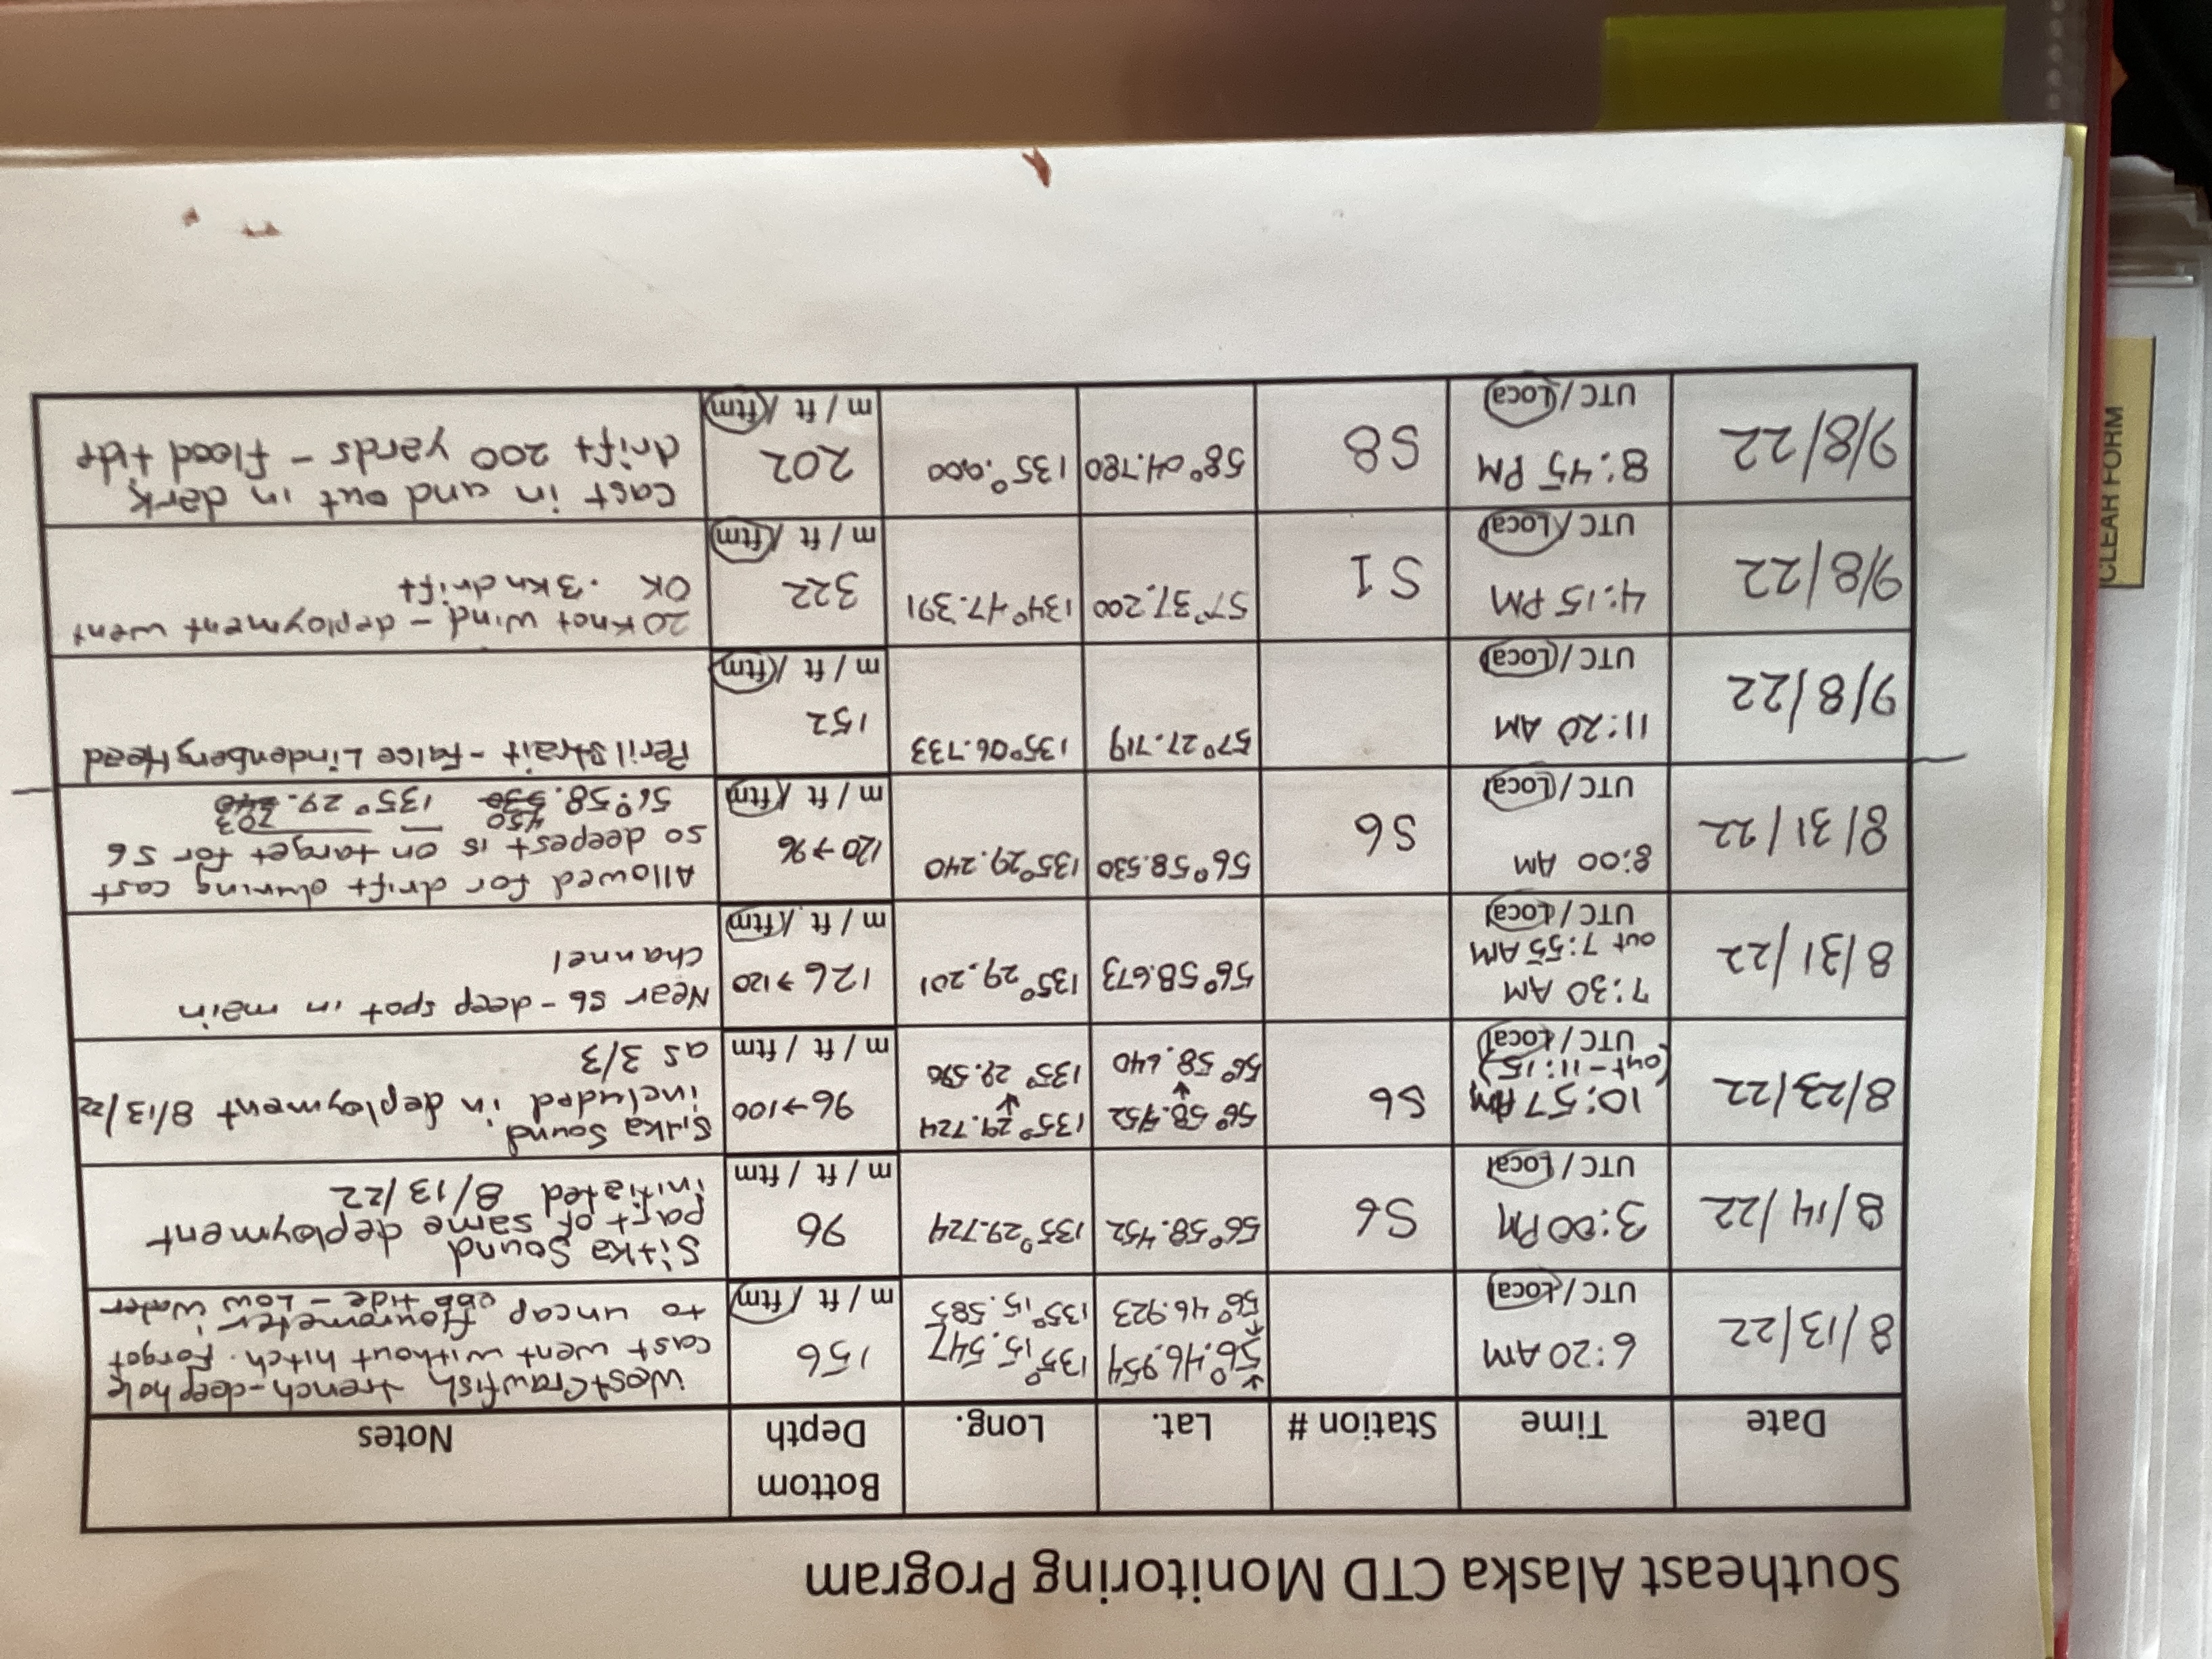 Southeast Alaska CTD Monitoring Program
Date Time Station # Lat. Long. Bottom Depth Notes
8/13/22
6:20 AM
UTC / Local
↓
56°.46.954
↑
56° 46.923
135° 15.547
135° 15.585
156
m / ft / ftm
West Crawfish trench-deep hole
cast went without hitch. Forgot
to uncap flourometer
ebb tide - Low Water
8/14/22
3:00 PM
UTC / Local
S6
56° 58.452
135° 29.724
96
m / ft / ftm
Sitka Sound
part of same deployment
initiated 8/13/22
8/23/22
10:57 AM
(out - 11:15)
UTC / Local
S6
56° 58.452
↓
56° 58.640
135° 29.724
↓
135° 29.590
96 → 100
m / ft / ftm
Sitka Sound
included in deployment 8/13/22
as 3/3
8/31/22
7:30 AM
out 7:55 AM
UTC / Local
56° 58.673
135° 29.201
126 → 120
m / ft / ftm
Near S6 - deep spot in main
channel
8/31/22
8:00 AM
UTC / Local
S6
56° 58.530
135° 29.240
120 → 96
m / ft / ftm
Allowed for drift during cast
so deepest is on target for S6
450 703
56° 58.530 135° 29.240
9/8/22
11:20 AM
UTC / Local
57° 27.719
135° 06.733
152
m / ft / ftm
Peril Strait - False Lindenberg Head
9/8/22
4:15 PM
UTC / Local
S1
57° 37.200
134° 47.391
322
m / ft / ftm
20 Knot wind - deployment went
OK .3 Kn drift
9/8/22
8:45 PM
UTC / Local
S8
58° 04.780
135°.000
202
m / ft / ftm
Cast in and out in dark
drift 200 yards - flood tide
CLEAR FORM